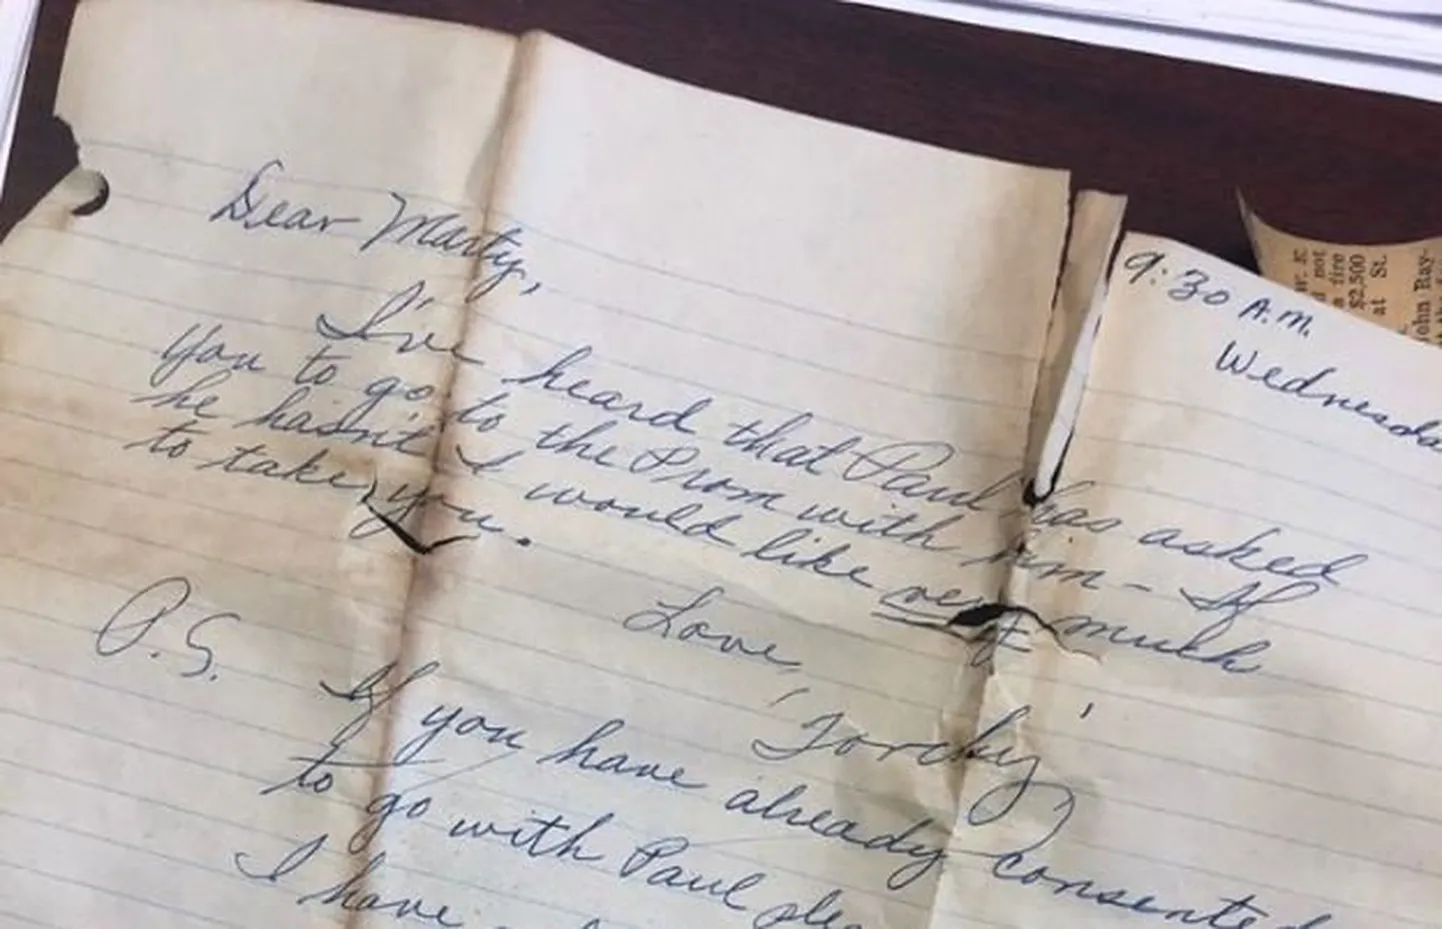 9:30 A.M.
Wednesda
Dear Marty,
I've heard that Paul has asked
you to go to the Prom with him - If
he hasn't I would like very much
to take you.
Love,
'Torchy'
P.S. If you have already consented
to go with Paul
I have
$2,500
at St.
fire
not
John Ray-